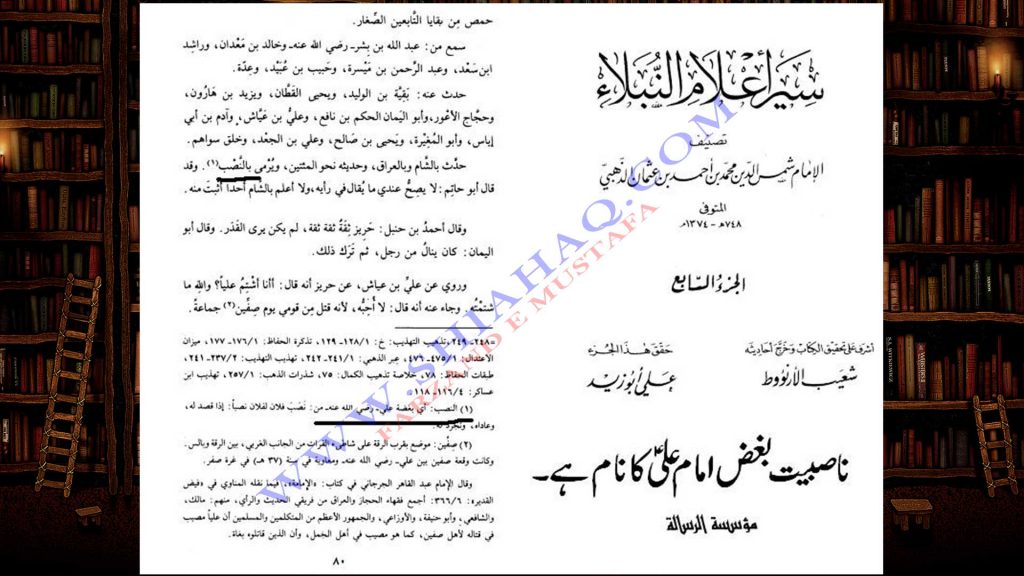 سير أعلام النبلاء
تصنيف
الإمام شمس الدين محمد بن أحمد بن عثمان الذهبي
المتوفى
٧٤٨هـ - ١٣٧٤م
الجزء السابع
أشرف على تحقيق الكتاب وخرج أحاديثه
شعيب الأرنؤوط
حقق هذا الجزء
علي أبو زيد
ناصبیت بغض امام علیؑ کا نام ہے۔
مؤسسة الرسالة
حمص مِن بقايا التَّابعين الصِّغار.
سمع من: عبد الله بن بشر- رضي الله عنه- وخالد بن مَعْدان، وراشد
ابن سَعْد، وعبد الرَّحمن بن مَيْسرة، وحَبيب بن عُبَيْد، وعِدّة.
حدث عنه: بَقِيَّة بن الوليد، ويحيى القَطَّان، ويزيد بن هَارُون،
وحجَّاج الأعْور، وأبو اليَمان الحكم بن نافع، وعليُّ بن عَيَّاش، وآدم بن أبي
إياس، وأبو المُغِيْرة، ويَحيى بن صَالح، وعلي بن الجعْد، وخلق سواهم.
حدَّث بالشَّام وبالعراق، وحديثه نحو المئتين، ويُرْمى بالنَّصْب(١). وقد
قال أبو حاتِم: لا يصِحُّ عندي ما يُقال في رأيه، ولا أعلم بالشَّام أحداً أثبتَ منه.
وقال أحمدُ بن حنبل: حَرِيز ثِقَةٌ ثقة ثقة، لم يكن يرى القَدَر. وقال أبو
اليمان: كان ينالُ من رجل، ثم تَرَك ذلك.
وروي عن عليِّ بن عياش، عن حريز أنه قال: أأنا أشْتِمُ علياً؟ والله ما
شتمْتُه. وجاء عنه أنه قال: لا أُحِبُّه، لأنه قتل مِن قومي يوم صِفِّين(٢) جماعةً.
=٢٤٨-٢٤٩، تذهيب التهذيب: خ: ١٢٨/١-١٢٩، تذكرة الحفاظ: ١٧٦/١-١٧٧، ميزان
الاعتدال: ٤٧٥/١-٤٧٦، عبر الذهبي: ٢٤١/١-٢٤٢، تهذيب التهذيب: ٢٣٧/٢-٢٤١،
طبقات الحفاظ: ٧٨، خلاصة تذهيب الكمال: ٧٥، شذرات الذهب: ٢٥٧/١، تهذيب ابن
عساكر: ١١٦/٤-١١٨.
(١) النصب: أي بغضة علي- رضي الله عنه- من: نَصَبَ فلان لفلان نصباً: إذا قصد له،
وعاداه، وتجرد له.
(٢) صِفِّين: موضع بقرب الرقة على شاطىء الفرات من الجانب الغربي، بين الرقة وبالس.
وكانت وقعة صفين بين علي- رضي الله عنه- ومعاوية في سنة (٣٧ هـ) في غرة صفر.
وقال الإمام عبد القاهر الجرجاني في كتاب: «الإمامة»، فيما نقله المناوي في «فيض
القدير»: ٣٦٦/٦: أجمع فقهاء الحجاز والعراق من فريقي الحديث والرأي، منهم: مالك،
والشافعي، وأبو حنيفة، والأوزاعي، والجمهور الأعظم من المتكلمين والمسلمين أن علياً مصيب
في قتاله لأهل صفين، كما هو مصيب في أهل الجمل، وأن الذين قاتلوه بغاة.
٨٠
WWW.SHIAHAQ.COM
FARZAND E MUSTAFA